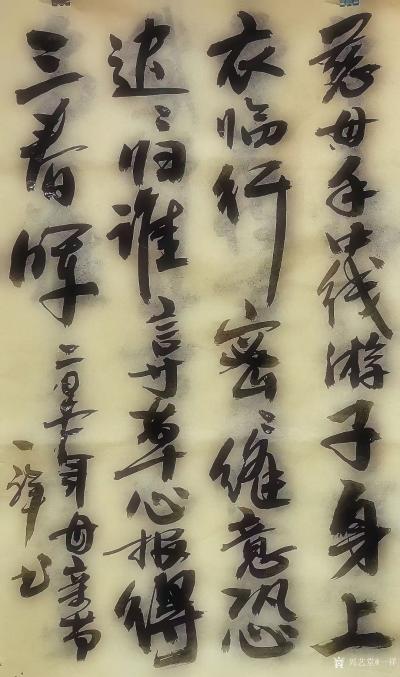 慈母手中线游子身上
衣临行密密缝意恐
迟迟归谁言寸草心报得
三春晖
二〇一七年母亲节
一祥书
兴艺堂@一祥